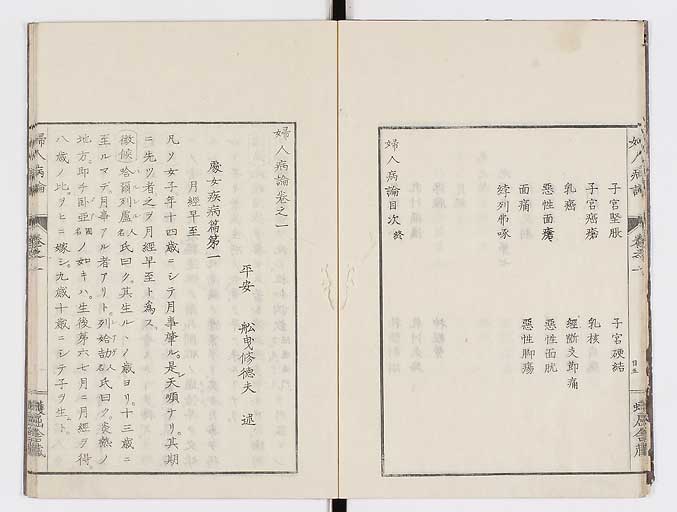 子宮堅脹　子宮硬結
子宮癌瘍　乳核
乳癌　經斷支節痛
惡性面瘡　惡性面肬
面痛　惡性脚瘍
婦人病論目次終
婦人病論巻之一
平安　舩曳修徳夫　述
處女疾病篇第一
月經早至
凡ソ女子年十四歳ニシテ月事肇ル。是天順ナリ。其期
ニ先ツ者之ヲ月經早至ト爲ス
徴候哈爾列盧名人氏曰ク。其生ル、ノ歳ヨリ。十三歳ニ
至ルマデ。月事アル者アリト列始劫名人氏曰ク。炎熱ノ
地方。即チ臥亞名國ノ如キハ。生後第六七月ニ月經ヲ得。
八歳ノ比。ヲヒニ嫁シ。九歳十歳ニシテ子ヲ生ト。
婦人病論
巻之一